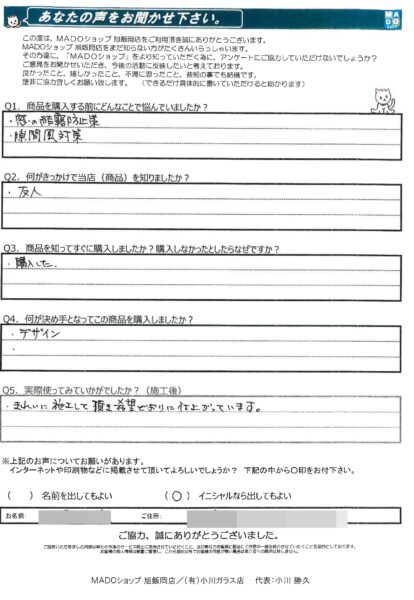 あなたの声をお聞かせ下さい。
MADO
この度は、MADOショップ 旭飯岡店をご利用頂き誠にありがとうございます。
MADOショップ 旭飯岡店をまだ知らない方がたくさんいらっしゃいます。
その方達に、「MADOショップ」をより知っていただく為に、アンケートにご協力していただけないでしょうか?
ご意見をお聞かせいただき、今後の活動に反映したいと考えております。
良かったこと、嬉しかったこと、不満に思ったこと、些細の事でも結構です。
是非ご協力宜しくお願い致します。 (できるだけ具体的に書いていただけると助かります)
Q1. 商品を購入する前にどんなことで悩んでいましたか?
・窓の結露防止策
・隙間風対策
Q2. 何がきっかけで当店(商品)を知りましたか?
・友人
Q3. 商品を知ってすぐに購入しましたか?購入しなかったとしたらなぜですか?
・購入した。
Q4. 何が決め手となってこの商品を購入しましたか?
・デザイン
・
Q5. 実際使ってみていかがでしたか?(施工後)
・きれいに施工して頂き希望どおりに仕上がっています。
※上記のお声についてお願いがあります。
インターネットや印刷物などに掲載させて頂いてよろしいでしょうか? 下記の中から〇印をお付下さい。
( ) 名前を出してもよい (〇) イニシャルなら出してもよい
お名前: ご住所:
ご協力、誠にありがとうございました。
MADOショップ 旭飯岡店/(有)小川ガラス店 代表:小川 勝久